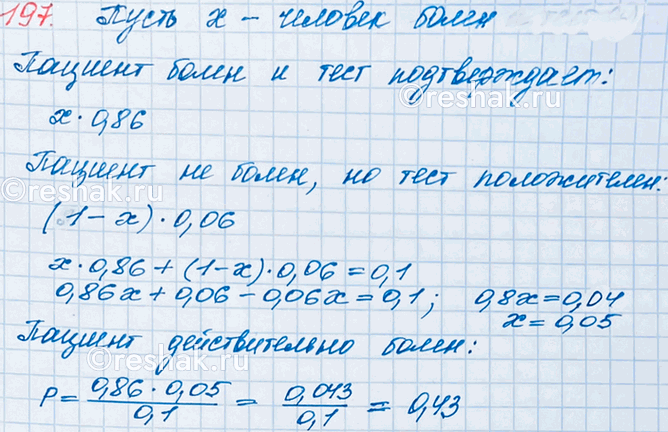 197. Пусть x – человек болен
Пациент болен и тест подтверждает:
x · 0,86
Пациент не болен, но тест положителен:
(1 – x) · 0,06
x · 0,86 + (1 – x) · 0,06 = 0,1
0,86x + 0,06 – 0,06x = 0,1; 0,8x = 0,04
x = 0,05
Пациент действительно болен:
P = 0,86 · 0,05 / 0,1 = 0,043 / 0,1 = 0,43
reshak.ru
reshak.ru
reshak.ru